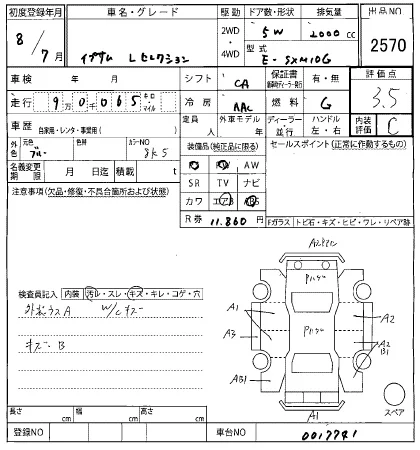 初度登録年月 車名・グレード 駆動 ドア数・形状 排気量 出品NO
8/7月 イプサム Lセレクション 2WD・4WD 5W 2000cc 2570
型式 E-SXM10G
車検 年 月 シフト CA 保証書 有・無 評価点
走行 9万0065 キロ・マイル 冷房 AAC 燃料 G 3.5
車歴 自家用・レンタ・事業用( ) 定員 人 外車モデル 年 ディーラー・並行 ハンドル 左・右 内装評価 C
外色 元色 ブルー 色替 カラーNO 8K5 装備品(純正品に限る) セールスポイント(正常に作動するもの)
名義変更期限 月 日迄 積載 t AW
注意事項(欠品・修復・不具合箇所および状態) SR TV ナビ
カワ エアB
R券 11.860円 Fガラス トビ石・キズ・ヒビ・ワレ・リペア跡
検査員記入 内装 汚レ・スレ・キズ・キレ・コゲ・穴
W/Cキズ
キズ B
A1
A3
AB1
A2
A2
B1
A1
スペア
長さ cm 幅 cm 高さ cm
登録NO 車台NO 0017741